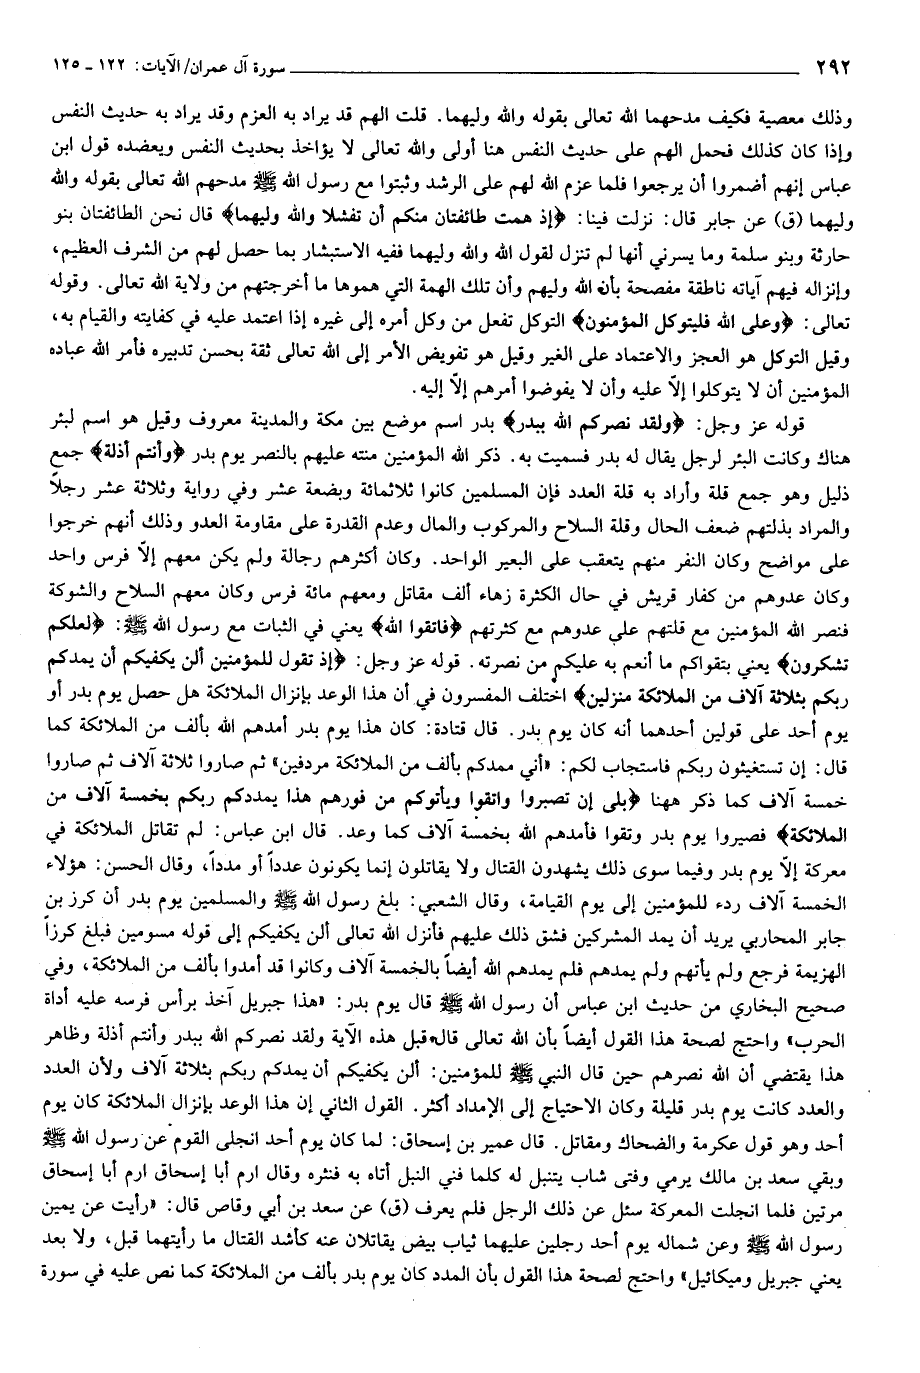 ٢٩٢ سورة آل عمران/ الآيات: ١٢٢ ـ ١٢٥
وذلك معصية فكيف مدحهما الله تعالى بقوله والله وليهما. قلت الهم قد يراد به العزم وقد يراد به حديث النفس
وإذا كان كذلك فحمل الهم على حديث النفس هنا أولى والله تعالى لا يؤاخذ بحديث النفس ويعضده قول ابن
عباس إنهم أضمروا أن يرجعوا فلما عزم الله لهم على الرشد وثبتوا مع رسول الله ﷺ مدحهم الله تعالى بقوله والله
وليهما (ق) عن جابر قال: نزلت فينا: ﴿إذ همت طائفتان منكم أن تفشلا والله وليهما﴾ قال نحن الطائفتان بنو
حارثة وبنو سلمة وما يسرني أنها لم تنزل لقول الله والله وليهما ففيه الاستبشار بما حصل لهم من الشرف العظيم،
وإنزاله فيهم آياته ناطقة مفصحة بأن الله وليهم وأن تلك الهمة التي هموها ما أخرجتهم من ولاية الله تعالى. وقوله
تعالى: ﴿وعلى الله فليتوكل المؤمنون﴾ التوكل تفعل من وكل أمره إلى غيره إذا اعتمد عليه في كفايته والقيام به،
وقيل التوكل هو العجز والاعتماد على الغير وقيل هو تفويض الأمر إلى الله تعالى ثقة بحسن تدبيره فأمر الله عباده
المؤمنين أن لا يتوكلوا إلّا عليه وأن لا يفوضوا أمرهم إلّا إليه.
قوله عز وجل: ﴿ولقد نصركم الله ببدر﴾ بدر اسم موضع بين مكة والمدينة معروف وقيل هو اسم لبئر
هناك وكانت البئر لرجل يقال له بدر فسميت به. ذكر الله المؤمنين منته عليهم بالنصر يوم بدر ﴿وأنتم أذلة﴾ جمع
ذليل وهو جمع قلة وأراد به قلة العدد فإن المسلمين كانوا ثلاثمائة وبضعة عشر وفي رواية وثلاثة عشر رجلاً
والمراد بذلتهم ضعف الحال وقلة السلاح والمركوب والمال وعدم القدرة على مقاومة العدو وذلك أنهم خرجوا
على مواضح وكان النفر منهم يتعقب على البعير الواحد. وكان أكثرهم رجالة ولم يكن معهم إلّا فرس واحد
وكان عدوهم من كفار قريش في حال الكثرة زهاء ألف مقاتل ومعهم مائة فرس وكان معهم السلاح والشوكة
فنصر الله المؤمنين مع قلتهم على عدوهم مع كثرتهم ﴿فاتقوا الله﴾ يعني في الثبات مع رسول الله ﷺ: ﴿لعلكم
تشكرون﴾ يعني بتقواكم ما أنعم به عليكم من نصرته. قوله عز وجل: ﴿إذ تقول للمؤمنين ألن يكفيكم أن يمدكم
ربكم بثلاثة آلاف من الملائكة منزلين﴾ اختلف المفسرون في أن هذا الوعد بإنزال الملائكة هل حصل يوم بدر أو
يوم أحد على قولين أحدهما أنه كان يوم بدر. قال قتادة: كان هذا يوم بدر أمدهم الله بألف من الملائكة كما
قال: إن تستغيثون ربكم فاستجاب لكم: «أني ممدكم بألف من الملائكة مردفين» ثم صاروا ثلاثة آلاف ثم صاروا
خمسة آلاف كما ذكر ههنا ﴿بلى إن تصبروا واتقوا ويأتوكم من فورهم هذا يمددكم ربكم بخمسة آلاف من
الملائكة﴾ فصبروا يوم بدر وتقوا فأمدهم الله بخمسة آلاف كما وعد. قال ابن عباس: لم تقاتل الملائكة في
معركة إلّا يوم بدر وفيما سوى ذلك يشهدون القتال ولا يقاتلون إنما يكونون عدداً أو مدداً، وقال الحسن: هؤلاء
الخمسة آلاف ردء للمؤمنين إلى يوم القيامة، وقال الشعبي: بلغ رسول الله ﷺ والمسلمين يوم بدر أن كرز بن
جابر المحاربي يريد أن يمد المشركين فشق ذلك عليهم فأنزل الله تعالى ألن يكفيكم إلى قوله مسومين فبلغ كرزاً
الهزيمة فرجع ولم يأتهم ولم يمدهم فلم يمدهم الله أيضاً بالخمسة آلاف وكانوا قد أمدوا بألف من الملائكة، وفي
صحيح البخاري من حديث ابن عباس أن رسول الله ﷺ قال يوم بدر: «هذا جبريل آخذ برأس فرسه عليه أداة
الحرب» واحتج لصحة هذا القول أيضاً بأن الله تعالى قال قبل هذه الآية ولقد نصركم الله ببدر وأنتم أذلة وظاهر
هذا يقتضي أن الله نصرهم حين قال النبي ﷺ للمؤمنين: ألن يكفيكم أن يمدكم ربكم بثلاثة آلاف ولأن العدد
والعدد كانت يوم بدر قليلة وكان الاحتياج إلى الإمداد أكثر. القول الثاني إن هذا الوعد بإنزال الملائكة كان يوم
أحد وهو قول عكرمة والضحاك ومقاتل. قال عمير بن إسحاق: لما كان يوم أحد انجلى القوم عن رسول الله ﷺ
وبقي سعد بن مالك يرمي وفتى شاب يتنبل له كلما فني النبل أتاه به فنثره وقال ارم أبا إسحاق ارم أبا إسحاق
مرتين فلما انجلت المعركة سئل عن ذلك الرجل فلم يعرف (ق) عن سعد بن أبي وقاص قال: «رأيت عن يمين
رسول الله ﷺ وعن شماله يوم أحد رجلين عليهما ثياب بيض يقاتلان عنه كأشد القتال ما رأيتهما قبل، ولا بعد
يعني جبريل وميكائيل» واحتج لصحة هذا القول بأن المدد كان يوم بدر بألف من الملائكة كما نص عليه في سورة